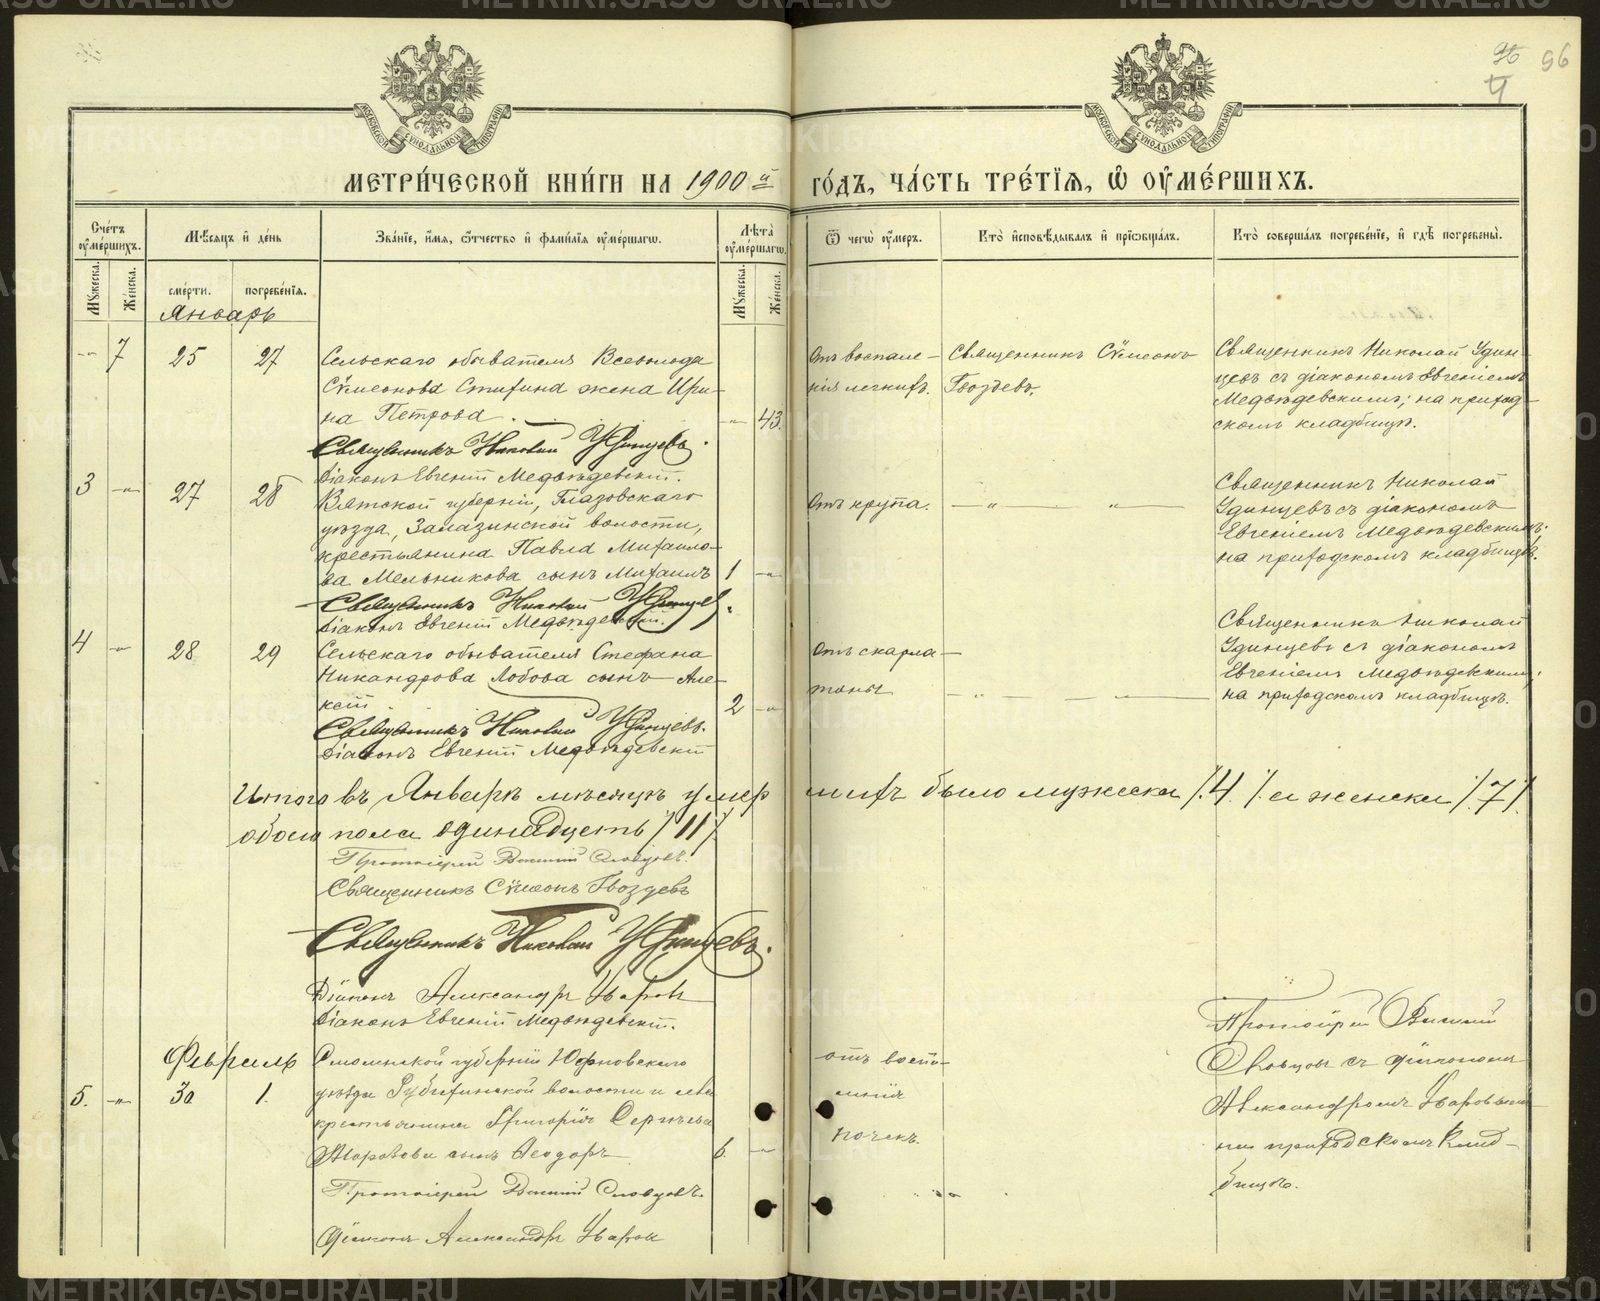 96 96
4
МОСКОВСКОЙ СѴНОДАЛЬНОЙ ТИПОГРАФІИ
МОСКОВСКОЙ СѴНОДАЛЬНОЙ ТИПОГРАФІИ
МЕТРИ́ЧЕСКОЙ КНИ́ГИ НА 1900 й ГО́ДЪ, ЧА́СТЬ ТРЕ́ТЇѦ, Ѿ ОУ҆МЕ́РШИХЪ.
Сче́тъ оу҆ме́ршихъ.
Мꙋжеска.
Же́нска.
Мѣ́сѧцъ и҆ де́нь
сме́рти.
погребе́нїѧ.
Зва́нїе, и҆́мѧ, ѻ҆́тчество и҆ фамі́лїѧ оу҆ме́ршагѡ.
Лѣ́та оу҆ме́ршагѡ.
Мꙋжеска.
Же́нска.
Ѿ чегѡ̀ оу҆́меръ.
Кто̀ и҆сповѣ́дывалъ и҆ прїѡбща́лъ.
Кто̀ соверша́лъ погребе́нїе, и҆ гдѣ̀ погребены̀.
Январь
-„- 7 25 27
Сельскаго обывателя Всеволода
Сѵмеонова Стихина жена Ири-
на Петрова. -„- 43.
Священникъ Николай Удинцевъ.
Діаконъ Евгеній Медвѣдевскій.
Отъ воспале-
нія легкихъ.
Священникъ Сѵмеонъ
Гвоздевъ.
Священникъ Николай Удин-
цевъ съ діакономъ Евгеніемъ
Медвѣдевскимъ; на приход-
скомъ кладбищѣ.
3 -„- 27 28
Вятской губерніи, Глазовскаго
уѣзда, Залазинской волости,
крестьянина Павла Михаило-
ва Мельникова сынъ Михаилъ 1 -„-
Священникъ Николай Удинцевъ.
Діаконъ Евгеній Медвѣдевскій.
Отъ крупа.
— „ — „ —
Священникъ Николай
Удинцевъ съ діакономъ
Евгеніемъ Медвѣдевскимъ;
на приходскомъ кладбищѣ.
4 -„- 28 29
Сельскаго обывателя Стефана
Никандрова Лобова сынъ Але-
ксій. 2 -„-
Священникъ Николай Удинцевъ.
Діаконъ Евгеній Медвѣдевскій
Отъ скарла-
тины
— „ — „ —
Священникъ Николай
Удинцевъ съ діакономъ
Евгеніемъ Медвѣдевскимъ;
на приходскомъ кладбищѣ.
Итого въ Январѣ мѣсяцѣ умершихъ было мужеска /.4./ а женска /.7./
обоего пола одинадцать /.11./
Протоіерей Василій Словцовъ.
Священникъ Сѵмеонъ Гвоздевъ
Священникъ Николай Удинцевъ.
Діаконъ Александръ Уваровъ
Діаконъ Евгеній Медвѣдевскій.
Февраль
5. -„- 30 1.
Смоленской губерніи Юхновскаго
уѣзда Рубихинской волости
крестьянина Григорія Сергѣева
сынъ Ѳеодоръ 6. -„-
Протоіерей Василій Словцовъ.
Діаконъ Александръ Уваровъ
отъ воспа-
ленія
почекъ.
Протоіерей Василій
Словцовъ съ діакономъ
Александромъ Уваровымъ
на приходскомъ клад-
бищѣ.
METRIKI.GASO-URAL.RU